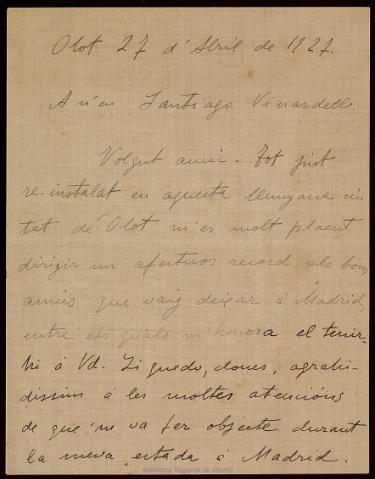 Olot 27 d'Abril de 1927.
A n'en Santiago Vinardell.
Volgut amic. Tot just
re-instalat en aquesta llunyana ciu
tat de Olot m'es molt plaent
dirigir un afectuos record als bons
amics que vaig deixar á Madrid,
entre els quals m'honora el tenir-
hi á Vd. Li quedo, doncs, agrahi-
dissim á les moltes atencións
de que'm va fer objecte durant
la meva estada á Madrid.
Biblioteca Regional de Madrid